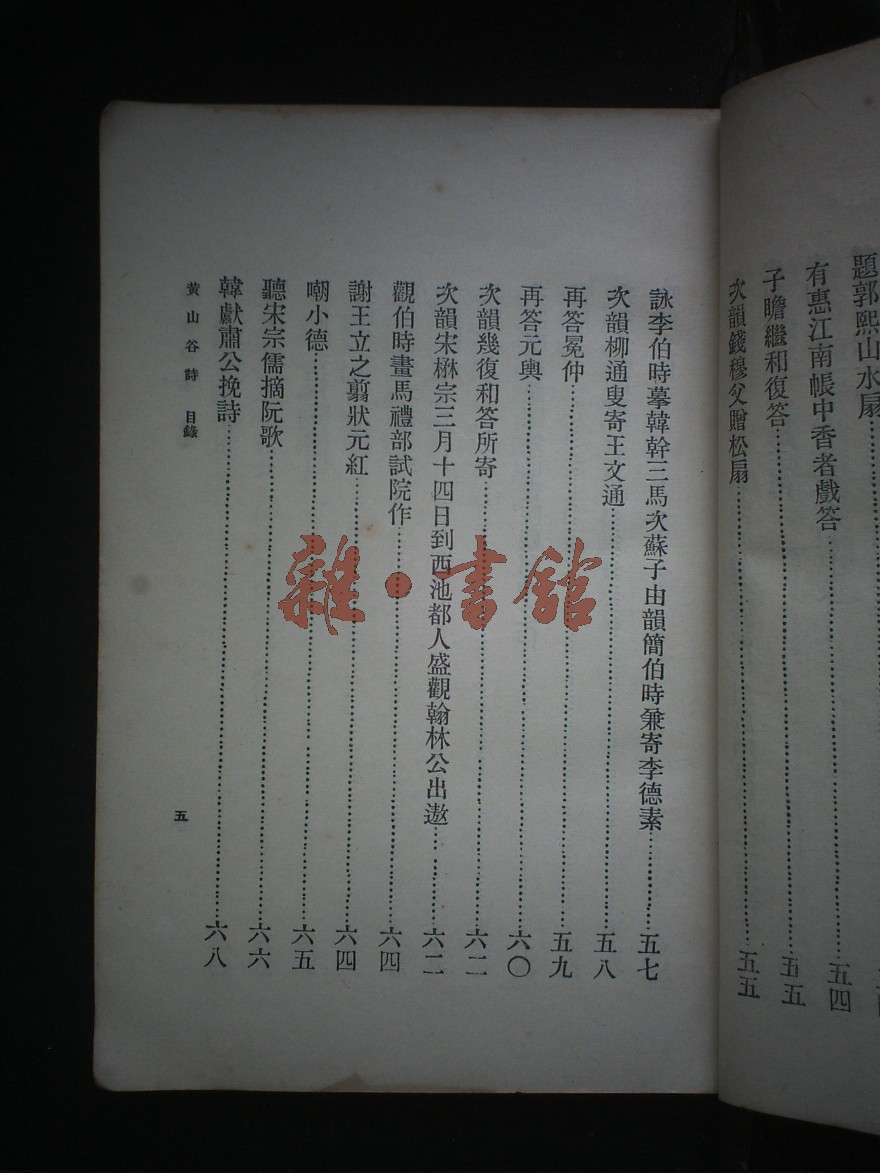 題郭熙山水扇
有惠江南帳中香者戲答……五四
子瞻繼和復答……五五
次韻錢穆父贈松扇……五五
詠李伯時摹韓幹三馬次蘇子由韻簡伯時兼寄李德素……五七
次韻柳通叟寄王文通……五八
再答冕仲……五九
再答元輿……六〇
次韻幾復和答所寄……六二
次韻宋楙宗三月十四日到西池都人盛觀翰林公出遨……六二
觀伯時畫馬禮部試院作……六四
謝王立之翦狀元紅……六四
嘲小德……六五
聽宋宗儒摘阮歌……六六
韓獻肅公挽詩……六八
黃山谷詩 目錄
五
雜·書館